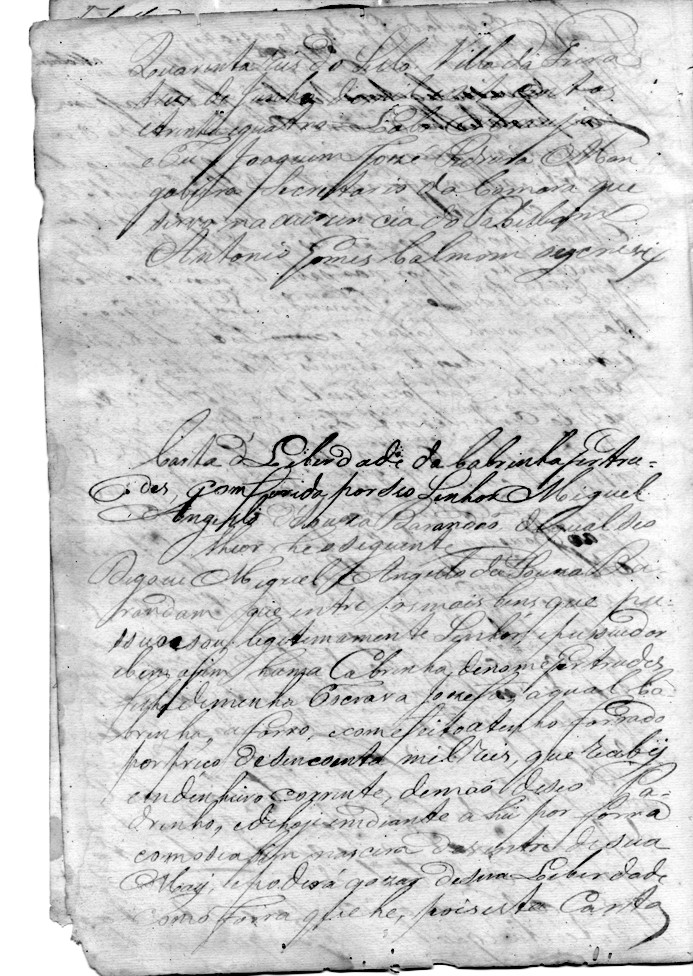 Quarenta reis do Sello. Villa da Feira
tres de Junho de mil oito centos
e trinta e quatro
e Eu Joaquim Joze Pedreira Man
gabeira Secretario da Camara que
sirvo na auzencia do Tabeliam
Antonio Gomes Calmom o escrevy
Carta d Liberdade da Cabrinha Gertru=
des, comferida por seo Senhor Miguel
Angello de Souza Barandão do qual seo
theor he o seguinte
Digo eu Miguel Angelo de Souza Ba
randam que entre os mais bens que pu-
ssuo e sou legitimamente Senhor e pussuidor
bem asim huma Cabrinha, de nome Gertrudes
filha de minha Escrava Jozefa, a qual Ca
brinha forro, e com efeito a tenho forrado
por preco de sincoenta mil reis, que recebij
em dinheiro corrente, de mão de seo Pa-
drinho, e de hoje em diante a hei por forra
como se asim nascera do ventre de sua
Maij, e poderá gozar de sua Liberdade
como forra que he, pois esta Carta